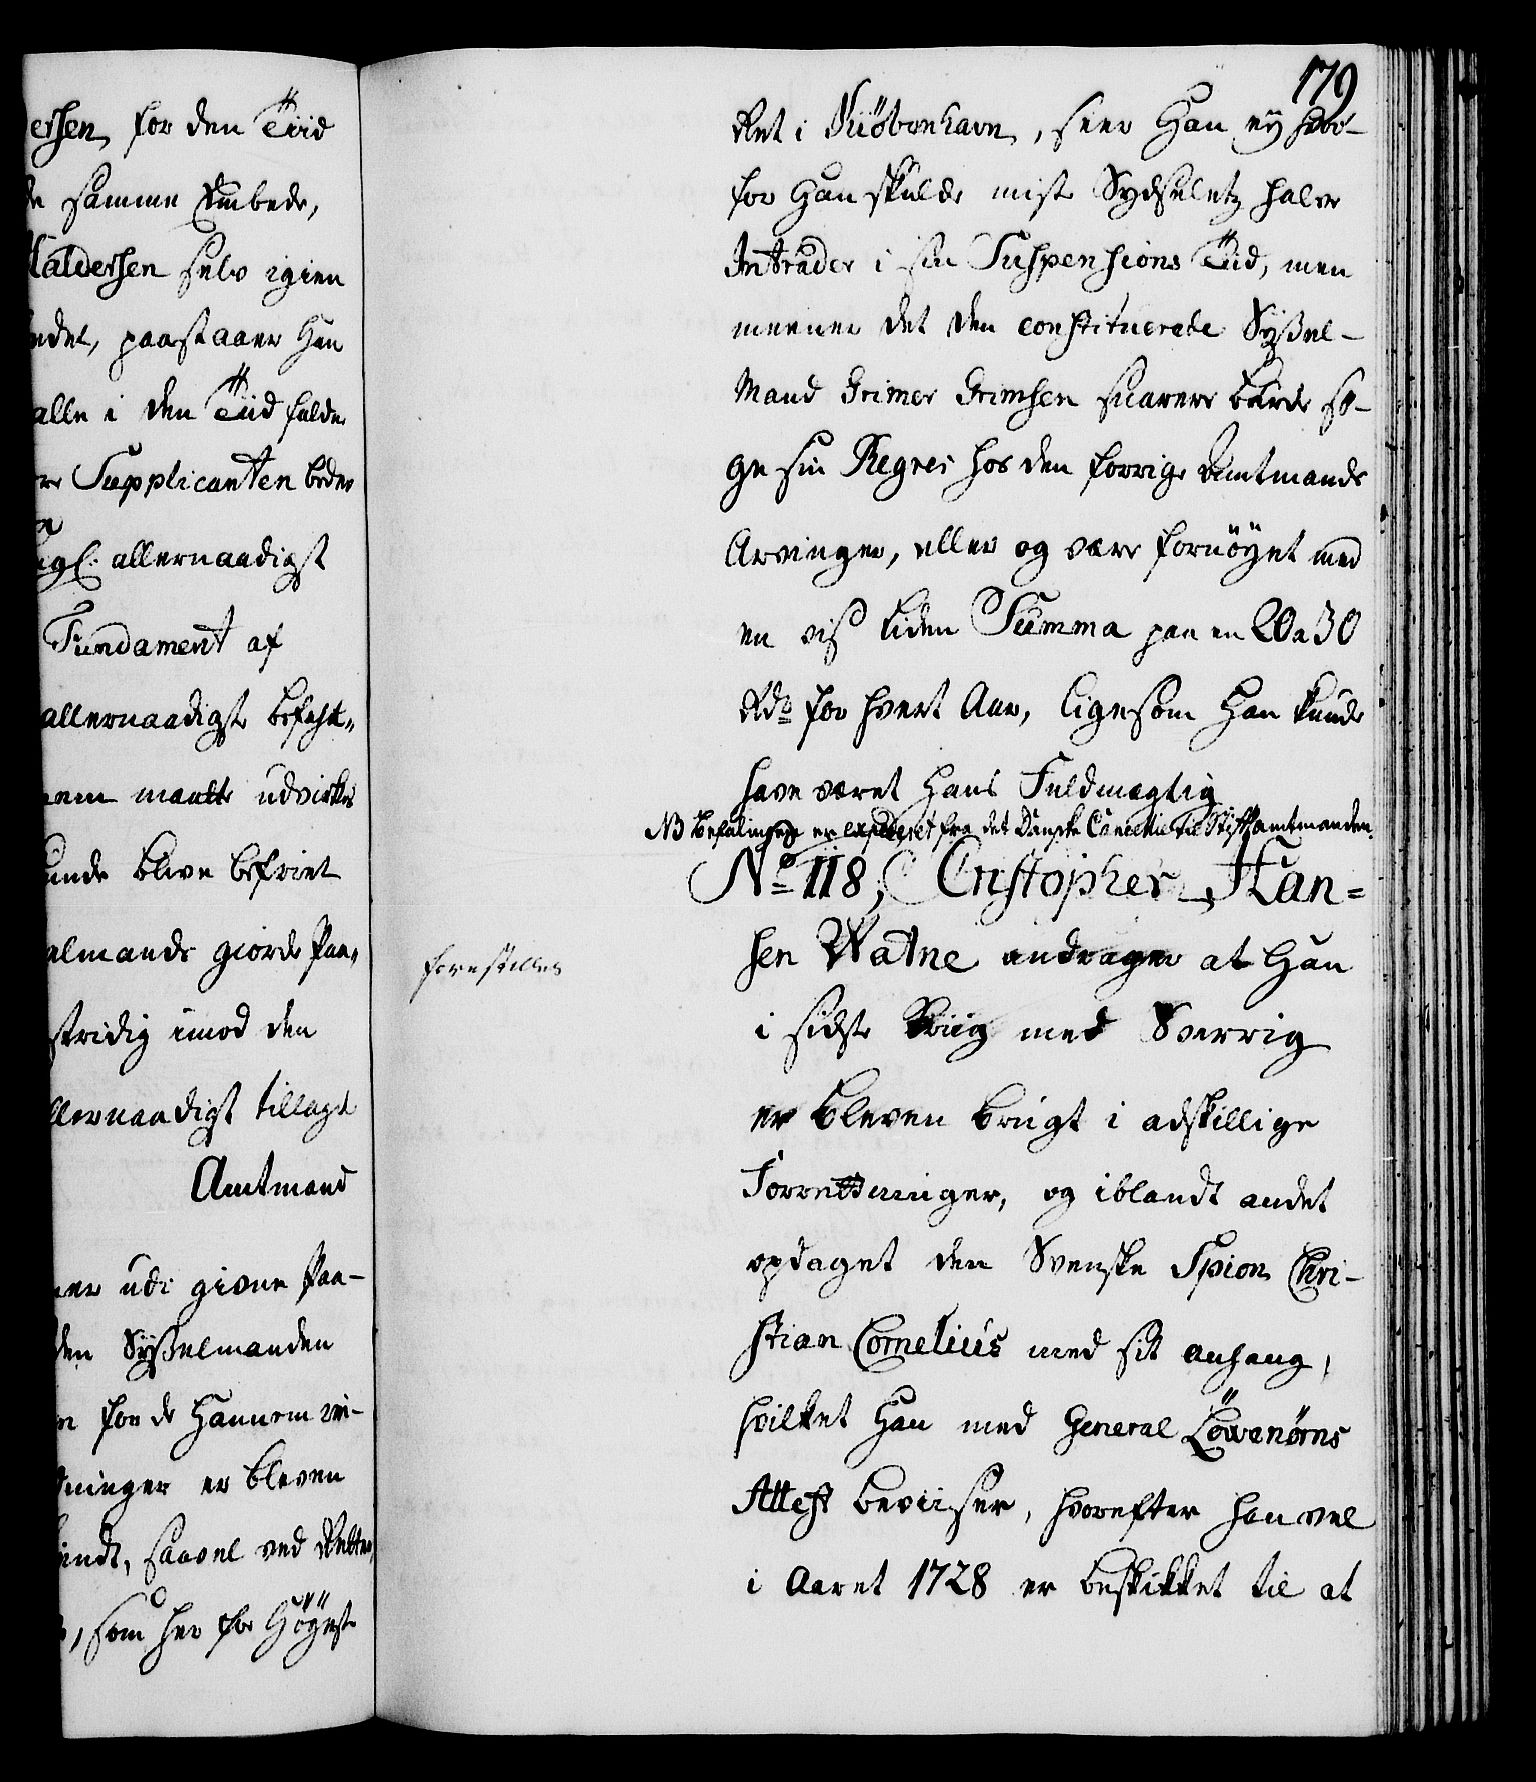 ersen, for den Tiid
de samme Embede,
Haldersen selv igien
endet, paastaaer Han
alle i den Tiid faldne
Supplicanten beder
Kongl: allernaadigst
Fundament af
allernaadigste befast-
maatte udvirkes
kunde blive befriet
almands giorde Paa-
stridig imod den
allernaadigst tillagt
Amtmand
ner udi givne Paa-
den Sysselmanden
for de Hannem vi-
dninger er bleven
kiendt, saavel ved Retten
, som her for Höyeste
179
Ret i Kiöbenhavn, seer Han ey hvor-
for Han skulde miste Sydseletz halve
Intrader i sin Suspensions Tiid, men
meener det den constituerede Syssel-
Mand Grimer Grimsen snarere burde sö-
ge sin Regres hos den forrige Amtmands
Arvinger, eller og være fornöyet med
en vis liden Summa paa en 20 a 30
Rdr for hvert Aar, ligesom Han kunde
have været Hans Fuldmægtig
NB Befalingen er expederet fra det Danske Cancellie til Stiftamtmanden.
No 118, Cristopher Han=
sen Watne andrager at Han
forestilles
i sidste Krig med Sverrig
er bleven brugt i adskillige
Forretninger, og iblandt andet
opdaget den Svenske Spion Chri-
stian Cornelius med sit anhang,
hvilket Han med General Löwenörns
Attest beviiser, hvorefter han vel
i Aaret 1728 er beskikket til at